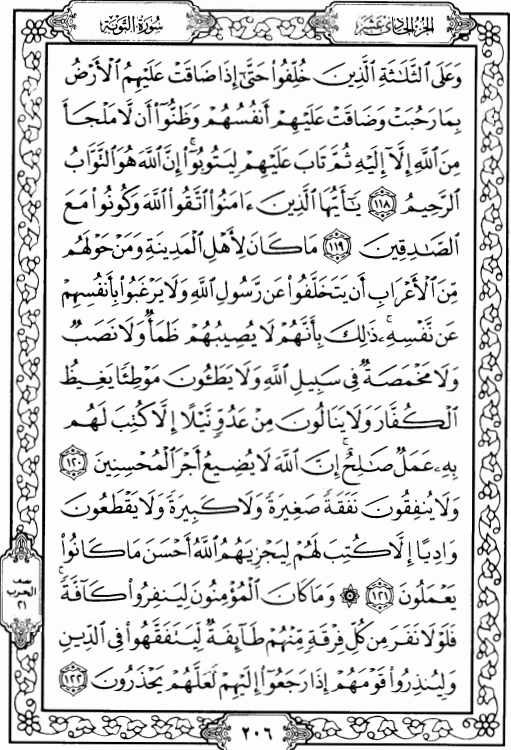 الجزء الحادي عشر
سورة التوبة
وَعَلَى ٱلثَّلَٰثَةِ ٱلَّذِينَ خُلِّفُوا۟ حَتَّىٰٓ إِذَا ضَاقَتْ عَلَيْهِمُ ٱلْأَرْضُ
بِمَا رَحُبَتْ وَضَاقَتْ عَلَيْهِمْ أَنفُسُهُمْ وَظَنُّوٓا۟ أَن لَّا مَلْجَأَ
مِنَ ٱللَّهِ إِلَّآ إِلَيْهِ ثُمَّ تَابَ عَلَيْهِمْ لِيَتُوبُوٓا۟ ۚ إِنَّ ٱللَّهَ هُوَ ٱلتَّوَّابُ
ٱلرَّحِيمُ ١١٨ يَٰٓأَيُّهَا ٱلَّذِينَ ءَامَنُوا۟ ٱتَّقُوا۟ ٱللَّهَ وَكُونُوا۟ مَعَ
ٱلصَّٰدِقِينَ ١١٩ مَا كَانَ لِأَهْلِ ٱلْمَدِينَةِ وَمَنْ حَوْلَهُم
مِّنَ ٱلْأَعْرَابِ أَن يَتَخَلَّفُوا۟ عَن رَّسُولِ ٱللَّهِ وَلَا يَرْغَبُوا۟ بِأَنفُسِهِمْ
عَن نَّفْسِهِۦ ۚ ذَٰلِكَ بِأَنَّهُمْ لَا يُصِيبُهُمْ ظَمَأٌ وَلَا نَصَبٌ
وَلَا مَخْمَصَةٌ فِى سَبِيلِ ٱللَّهِ وَلَا يَطَـُٔونَ مَوْطِئًا يَغِيظُ
ٱلْكُفَّارَ وَلَا يَنَالُونَ مِنْ عَدُوٍّ نَّيْلًا إِلَّا كُتِبَ لَهُم
بِهِۦ عَمَلٌ صَٰلِحٌ ۚ إِنَّ ٱللَّهَ لَا يُضِيعُ أَجْرَ ٱلْمُحْسِنِينَ ١٢٠
وَلَا يُنفِقُونَ نَفَقَةً صَغِيرَةً وَلَا كَبِيرَةً وَلَا يَقْطَعُونَ
وَادِيًا إِلَّا كُتِبَ لَهُمْ لِيَجْزِيَهُمُ ٱللَّهُ أَحْسَنَ مَا كَانُوا۟
يَعْمَلُونَ ١٢١ ۞ وَمَا كَانَ ٱلْمُؤْمِنُونَ لِيَنفِرُوا۟ كَآفَّةً ۚ
نصف
الحزب
٢١
فَلَوْلَا نَفَرَ مِن كُلِّ فِرْقَةٍ مِّنْهُمْ طَآئِفَةٌ لِّيَتَفَقَّهُوا۟ فِى ٱلدِّينِ
وَلِيُنذِرُوا۟ قَوْمَهُمْ إِذَا رَجَعُوٓا۟ إِلَيْهِمْ لَعَلَّهُمْ يَحْذَرُونَ ١٢٢
٢٠٦